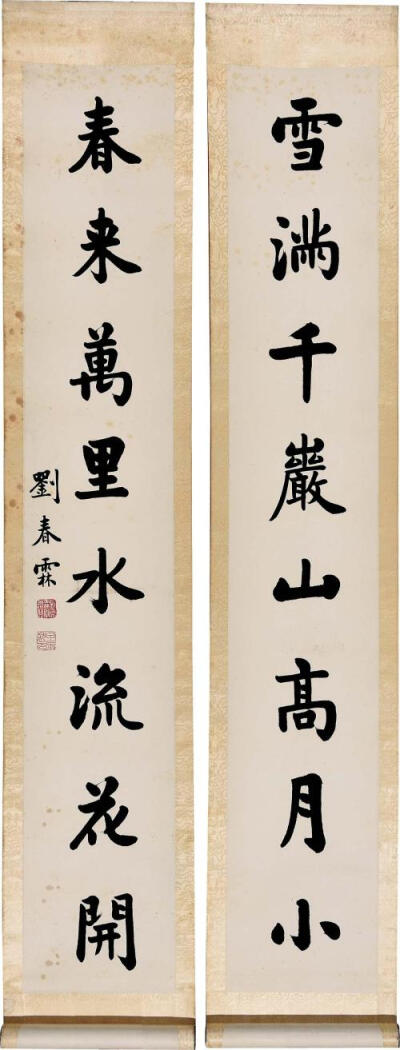 雪滿千巖山高月小
春来萬里水流花開
劉春霖